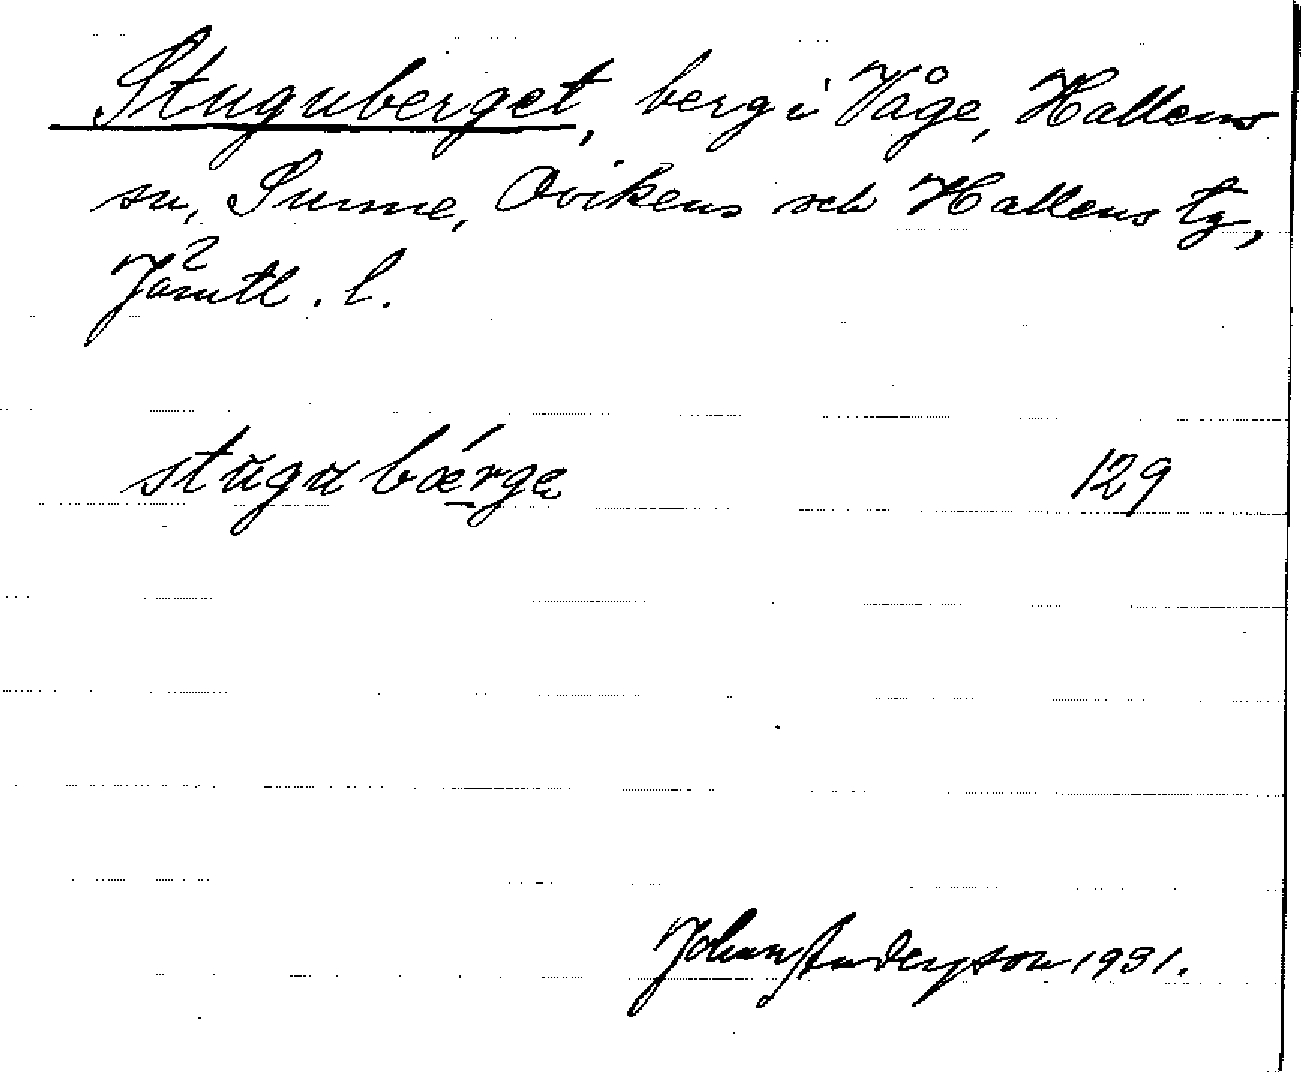 Stuguberget, berg i Våge, Hallens
sn, Sunne, Ovikens och Hallens tg,
Jämtl. l.
stugubǽrgɐ 129
Johan Anderson 1931.